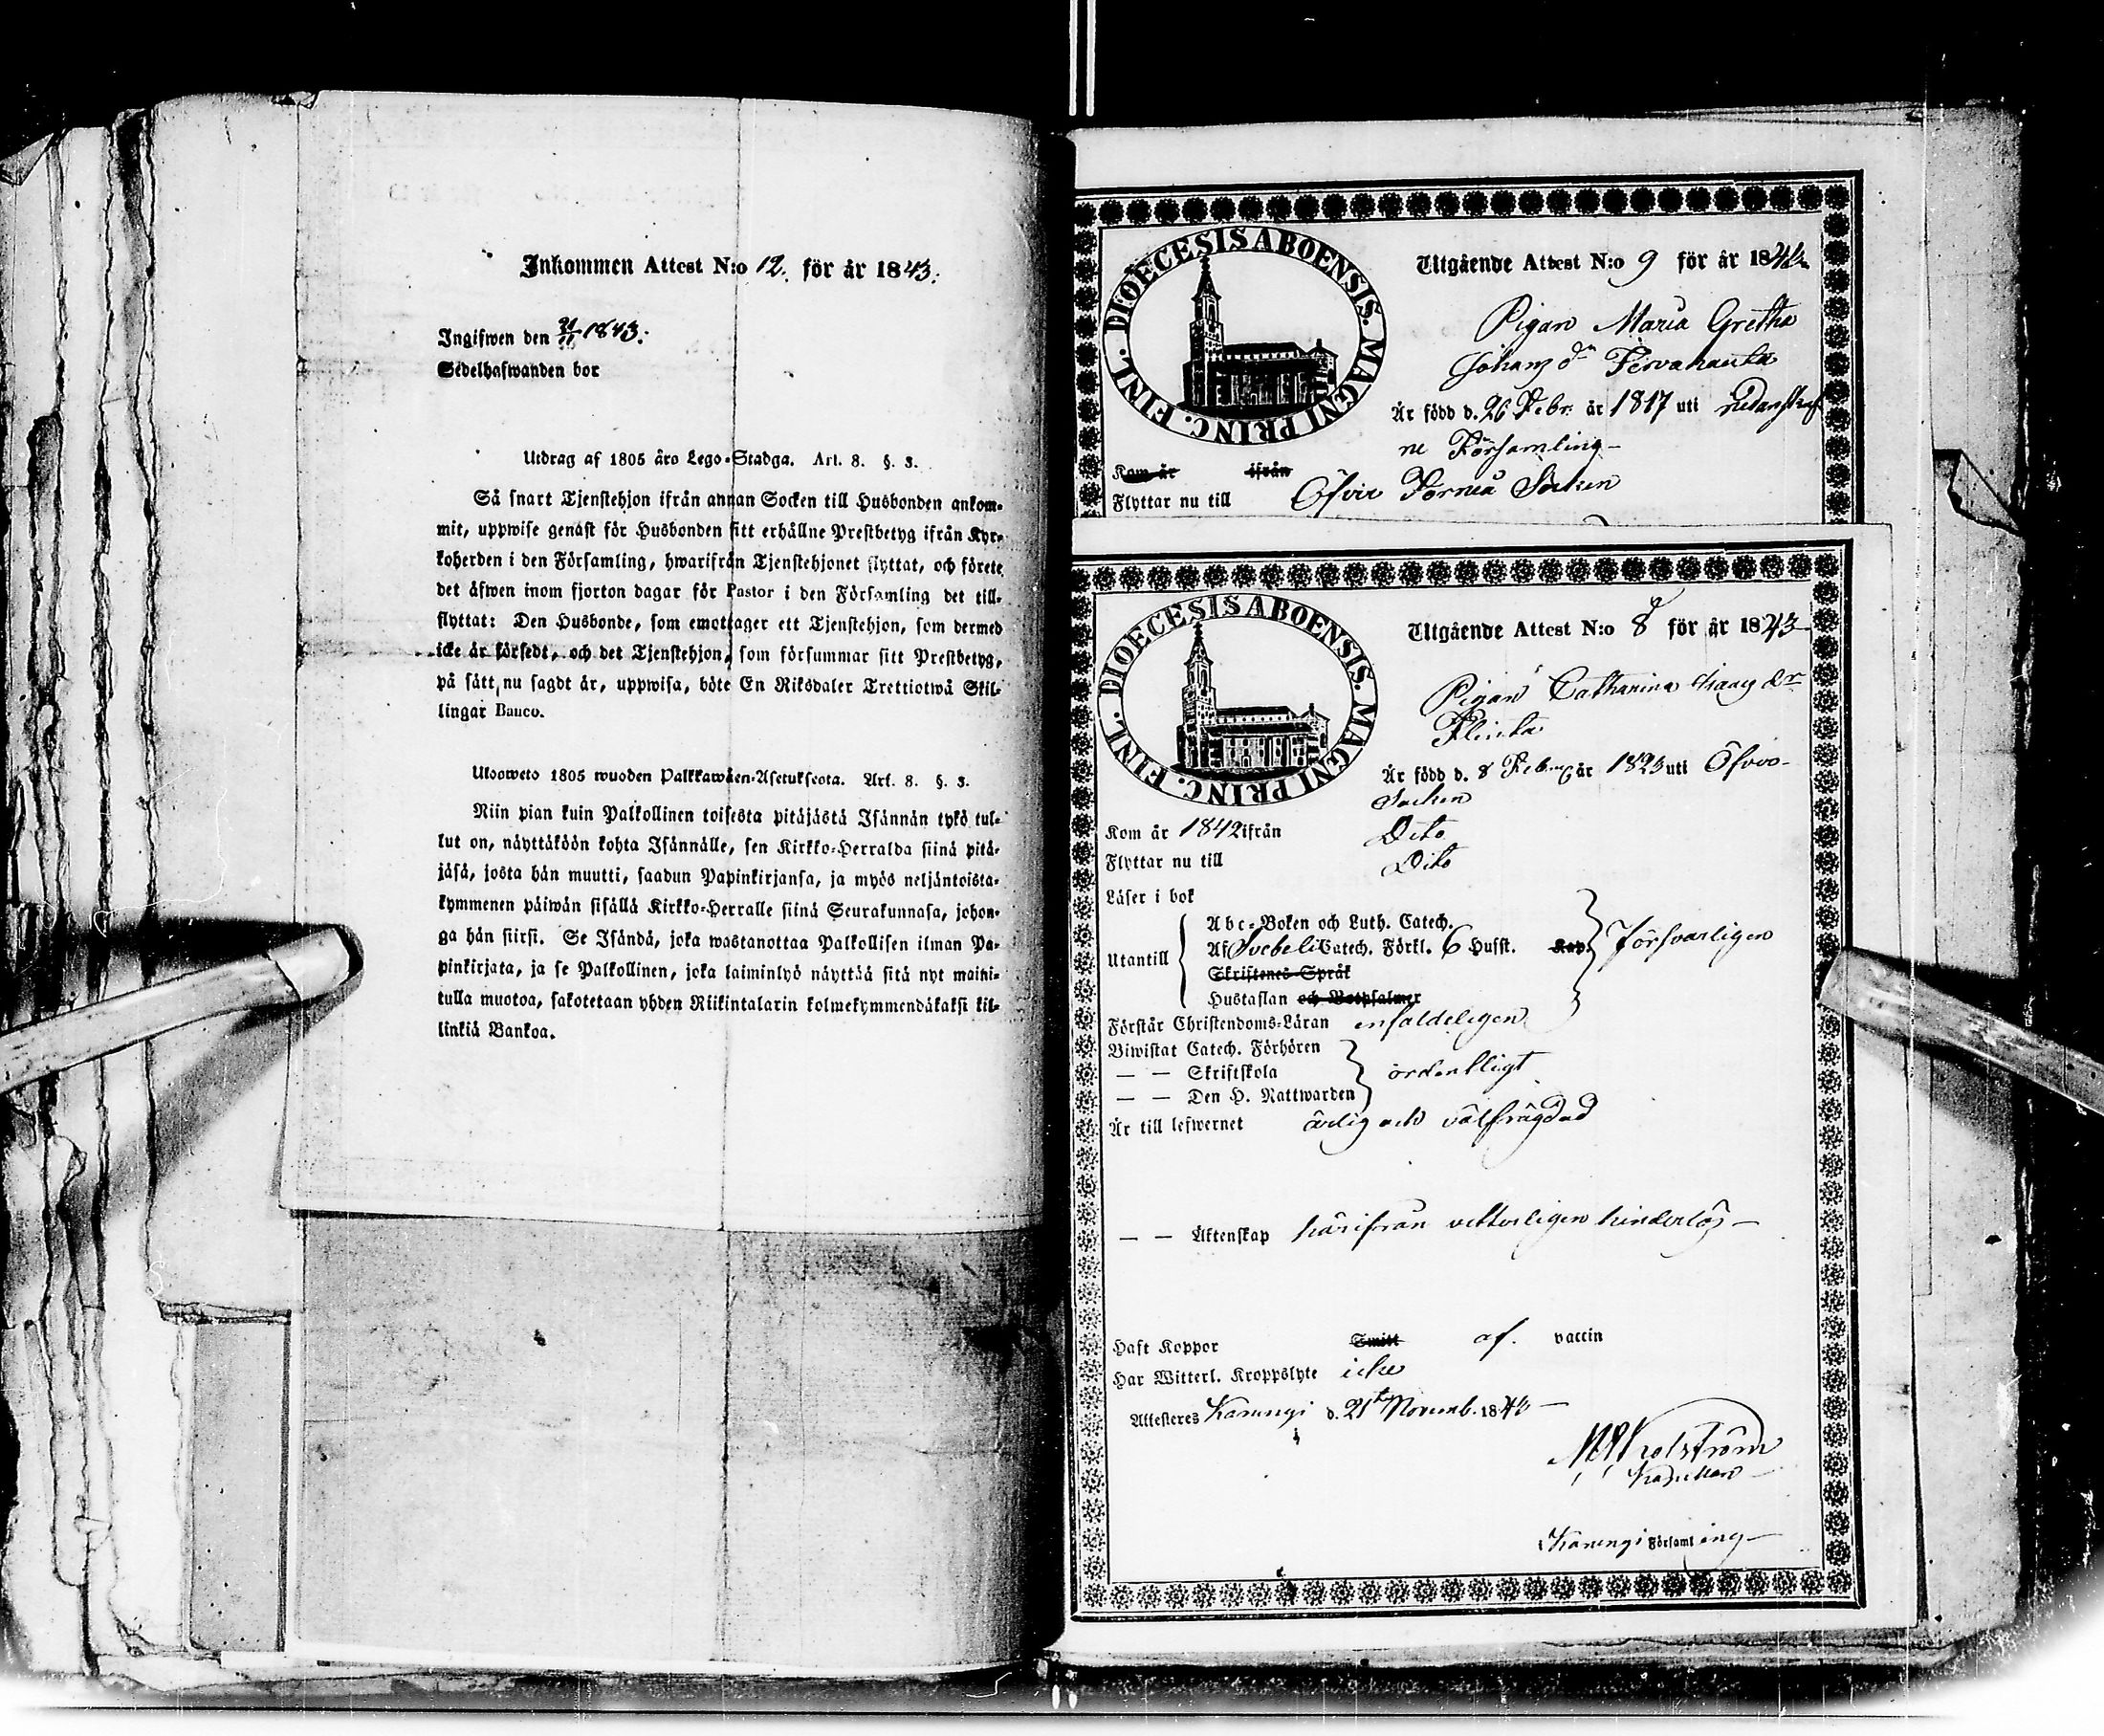 Inkommen Attest N:o 12. för år 1843.
Ingifwen den 21/11 1843.
Sedelhafwanden bor
Utdrag af 1805 års Lego-Stadga. Art. 8. §. 3.
Så snart Tjenstehjon ifrån annan Socken till Husbonden ankom-
mit, uppwise genast för Husbonden sitt erhållne Prestbetyg ifrån Kyr-
koherden i den Församling, hwarifrån Tjenstehjonet flyttat, och förete
det äfwen inom fjorton dagar för Pastor i den Församling det till-
flyttat: Den Husbonde, som emottager ett Tjenstehjon, som dermed
icke är försedt, och det Tjenstehjon, som försummar sitt Prestbetyg,
på sätt nu sagdt är, uppwisa, böte En Riksdaler Trettiotwå Skil-
lingar Banco.
Ulosweto 1805 wuoden Palkkawäen-Asetuksesta. Art. 8. §. 3.
Niin pian kuin Palkollinen toisesta pitäjästä Isännän tykö tul-
lut on, näyttäköön kohta Isännälle, sen Kirkko-Herralda siinä pitä-
jäsä, josta hän muutti, saadun Papinkirjansa, ja myös neljäntoista-
kymmenen päiwän sisällä Kirkko-Herralle siinä Seurakunnasa, johon-
ga hän siirsi. Se Isändä, joka wastanottaa Palkollisen ilman Pa-
pinkirjata, ja se Palkollinen, joka laiminlyö näyttää sitä nyt maini-
tulla muotoa, sakotetaan yhden Riikintalarin kolmekymmendäkaksi kil-
linkiä Bankoa.
DIOECESIS ABOENSIS. MAGNI PRINC. FINL.
Utgående Attest N:o 9 för år 184
Pigan Maria Gretha
Johans dr
Är född d. 26 Febr. år 1817 uti
ne Församling
Kom år ifrån
Flyttar nu till Öfver Torneå Socken
DIOECESIS ABOENSIS. MAGNI PRINC. FINL.
Utgående Attest N:o 8 för år 1843
Pigan Catharina Isaacs dr
Flinta
Är född d. 8 Febr. år 1823 uti Öfvre
Socken
Kom år 1842 ifrån Dito
Flyttar nu till Dito
Läser i bok
Abc-Boken och Luth. Catech.
Utantill Af Svebeli Catech. Förkl. 6 Husst. Kap. försvarligen
Skriftenes Språk
Hustaflan och Botpsalmer
Förstår Christendoms-Läran enfaldeligen
Biwistat Catech. Förhören
— — Skriftskola ordentligt
— — Den H. Nattwarden
Är till lefwernet ärlig och välfrägdad
— — Äktenskap härifrån vetterligen hinderlös
Haft Koppor Smitt af. vaccin
Har Witterl. Kroppslyte icke
Attesteras Karungi d. 21ste Novemb. 1843
Kapellan
Karungi Församling